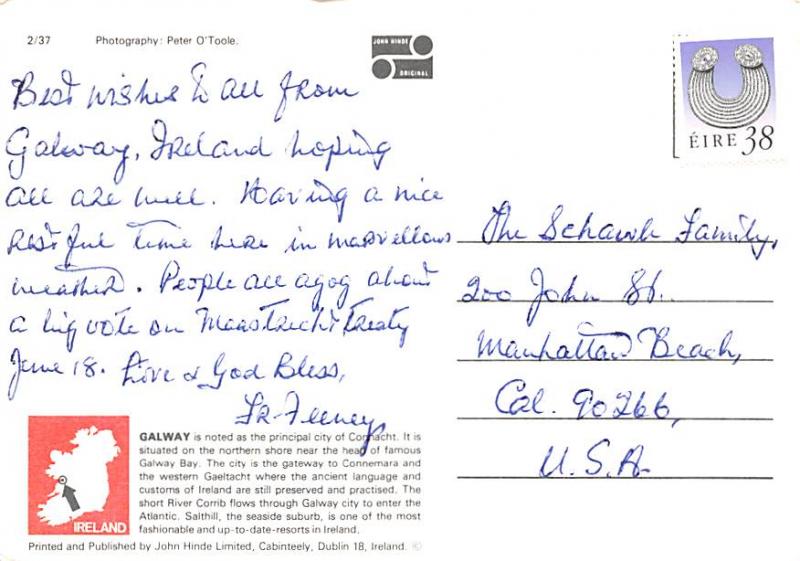 2/37 Photography: Peter O'Toole.
JOHN HINDE
ORIGINAL
Best wishes to all from
Galway, Ireland hoping
all are well. Having a nice
restful time here in marvellous
weather. People all agog about
a big vote on Maastricht Treaty
June 18. Love & God Bless,
Fr. Feeney
ÉIRE 38
The Schawk Family,
200 John St.
Manhattan Beach,
Cal. 90266,
U.S.A.
IRELAND
GALWAY is noted as the principal city of Connacht. It is
situated on the northern shore near the head of famous
Galway Bay. The city is the gateway to Connemara and
the western Gaeltacht where the ancient language and
customs of Ireland are still preserved and practised. The
short River Corrib flows through Galway city to enter the
Atlantic. Salthill, the seaside suburb, is one of the most
fashionable and up-to-date-resorts in Ireland.
Printed and Published by John Hinde Limited, Cabinteely, Dublin 18, Ireland. ©